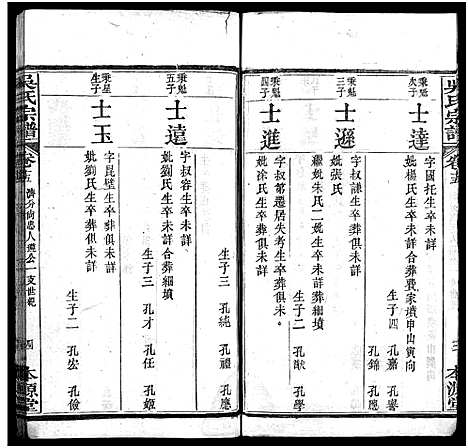 吳氏宗譜
卷十五
三
本源堂
秉魁次子
士達
字國托生卒未詳
妣楊氏生卒未詳合葬費家墳申山寅向
生子四 孔嘉 孔響
孔錦 孔應
秉魁三子
士遜
字叔謙生卒葬俱未詳
妣張氏
繼妣朱氏二妣生卒未詳葬細墳
生子二 孔猷 孔學
秉魁四子
士進
字叔蕃遷居失考生卒葬俱未
妣涂氏生卒葬俱未詳
秉魁五子
士遠
字叔容生卒未詳
妣劉氏生卒未詳合葬細墳
生子三 孔純 孔禮
生子三 孔才 孔任 孔姬
秉星生子
士玉
字昆璧生卒葬俱未詳
妣劉氏生卒葬俱未詳
生子二 孔宏 孔儉
吳氏宗譜
卷十五
濟分向忠人興公一支世紀
四
本源堂